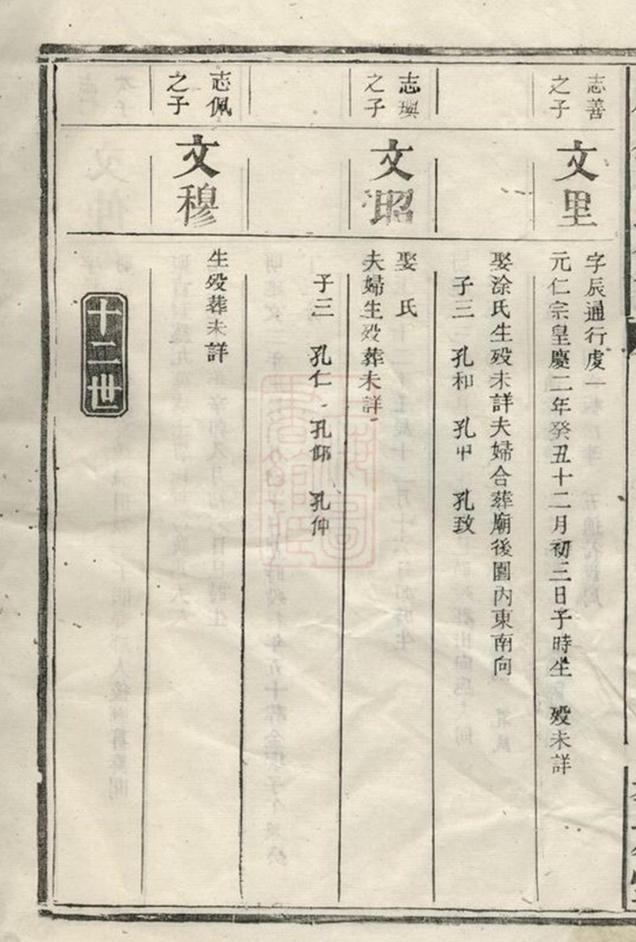 志善
之子
文里
字辰通行虔一
元仁宗皇慶二年癸丑十二月初三日子時生 殁未詳
娶涂氏生殁未詳夫婦合葬廟後園內東南向
子三 孔和 孔甲 孔致
志璵
之子
文昭
娶 氏
夫婦生殁葬未詳
子三 孔仁 孔郎 孔仲
志佩
之子
文穆
生殁葬未詳
十二世